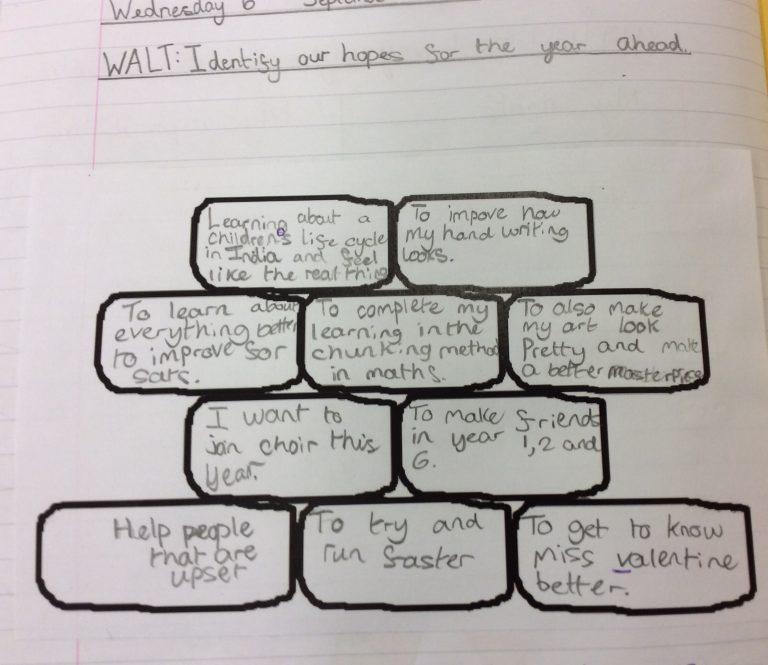 Wednesday 6 September
WALT: Identify our hopes for the year ahead.
Learning about a
children's life cycle
in India and feel
like the real thing
To impove how
my hand writing
looks.
To learn about
everything better
to improve for
sats.
To complete my
learning in the
chunking method
in maths.
To also make
my art look
Pretty and make
a better masterpiece
I want to
join choir this
year.
To make friends
in year 1,2 and
6.
Help people
that are
upset
To try and
run faster
To get to know
Miss valentine
better.